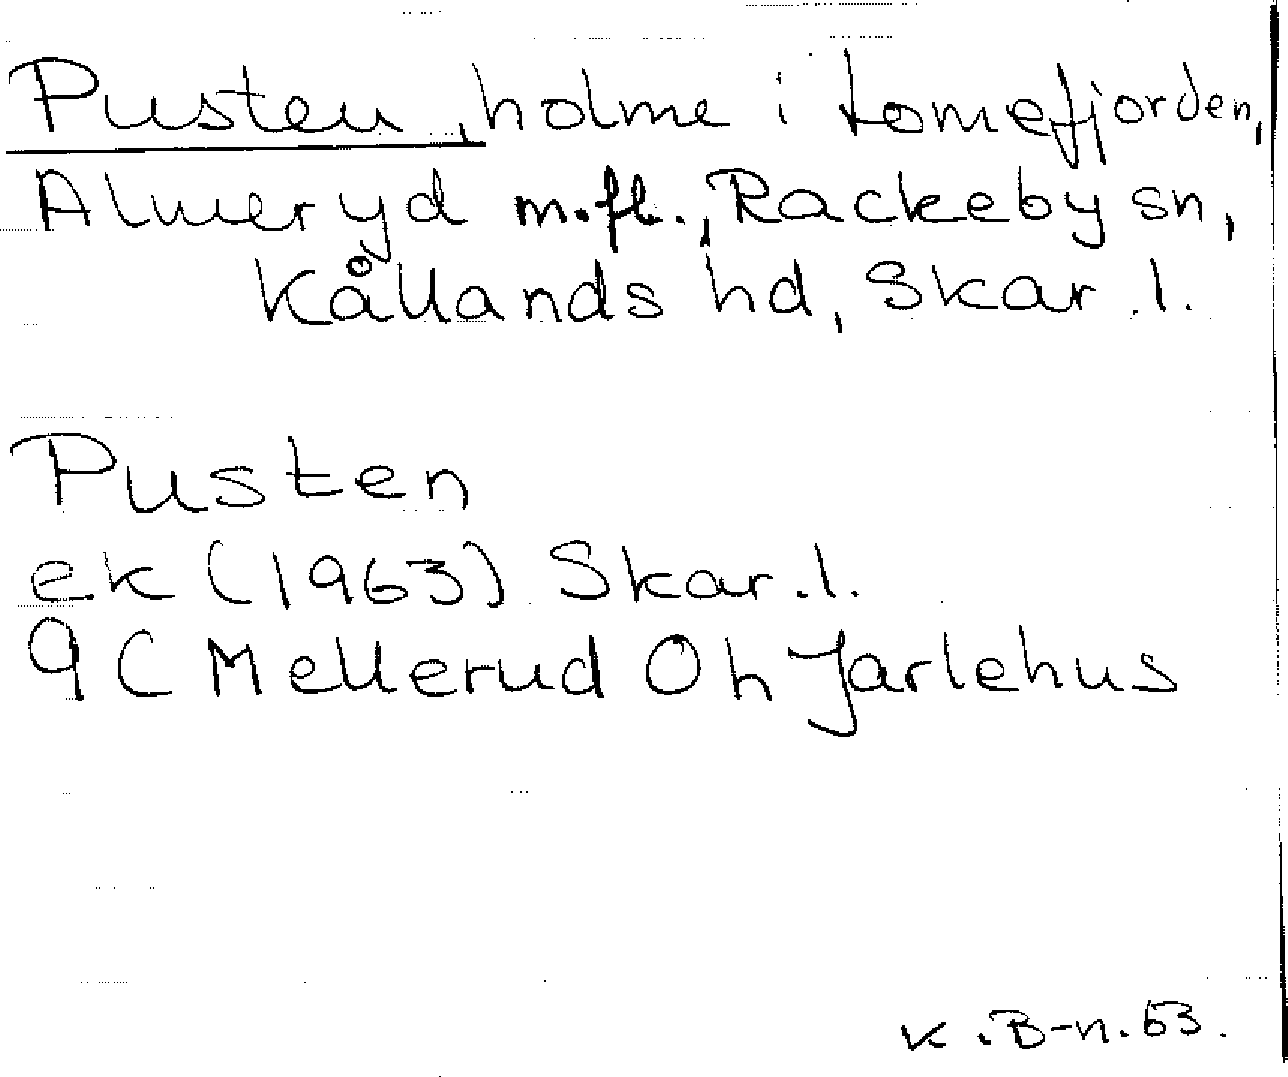 Pusten, holme i tomefjorden,
Almeryd m.fl., Rackeby sn,
Kållands hd, Skar.l.
Pusten
ek (1963) Skar.l.
9C Mellerud Öh Jarlehus
K.B-n.63.